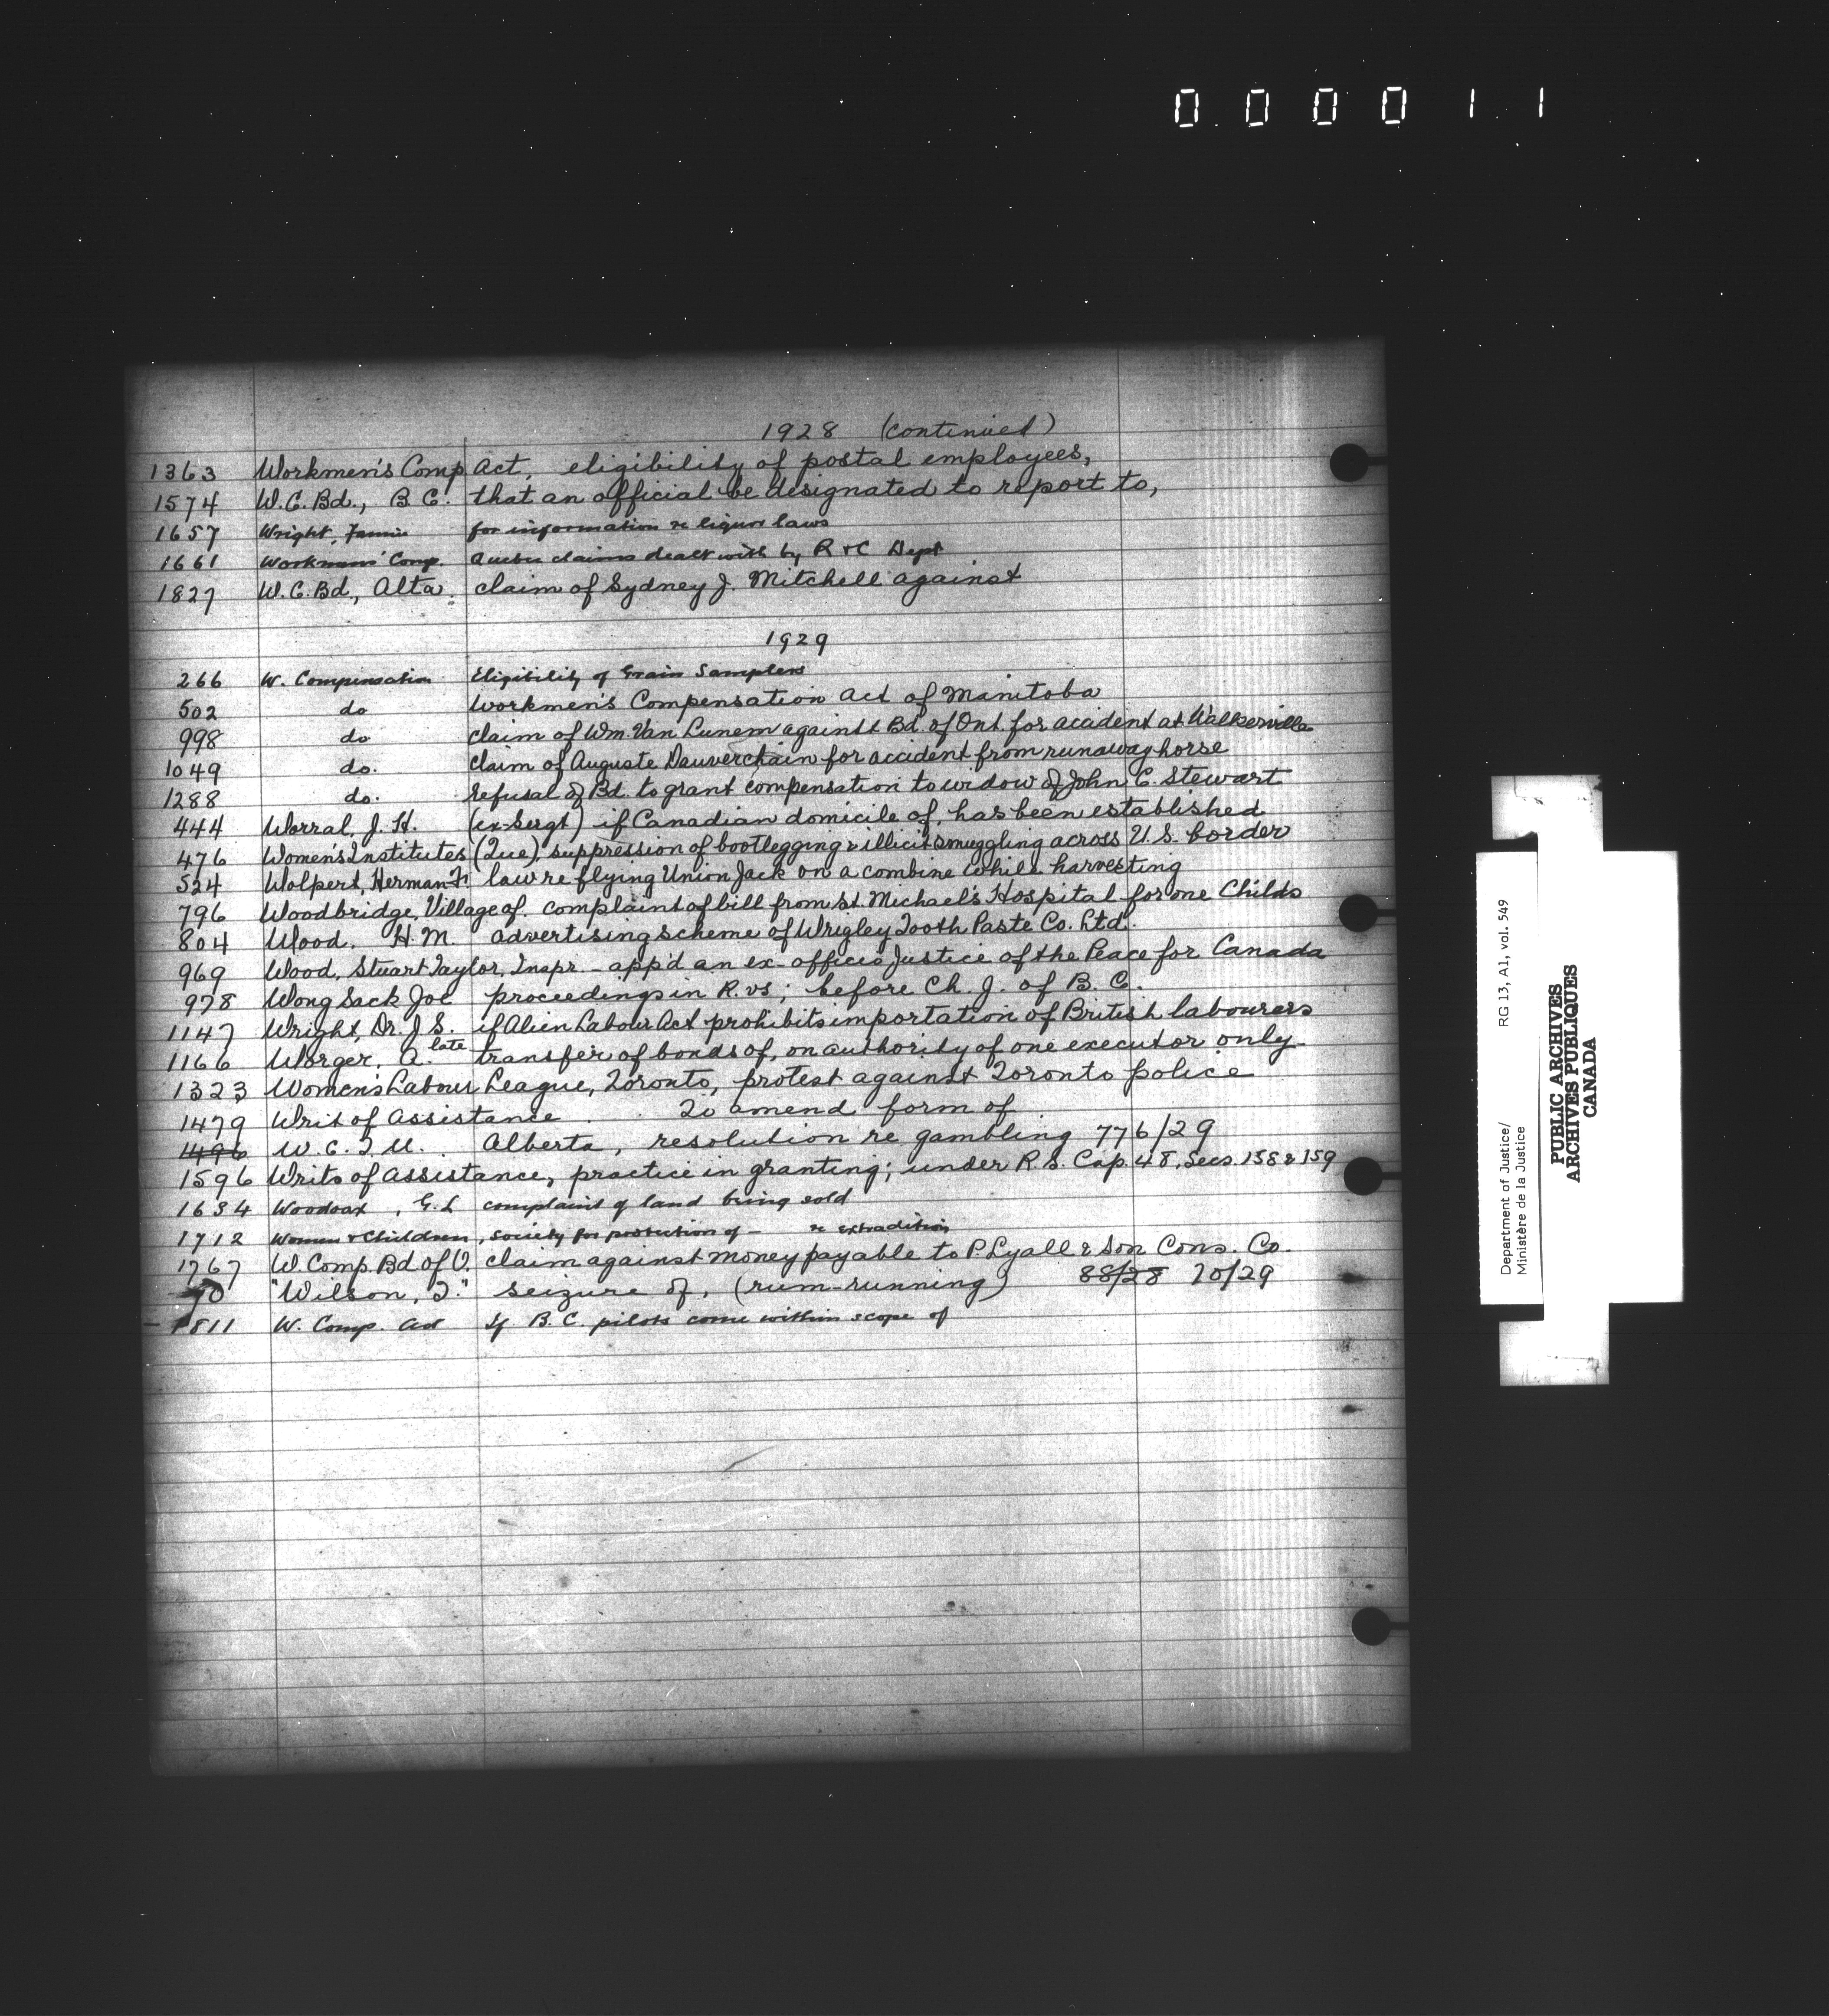 000011
1928 (continued)
1363 Workmen's Comp. Act, eligibility of postal employees,
1574 W.C.Bd., B.C. that an official be designated to report to,
1657 Wright, Fannie for information re liquor laws
1661 Workmens' Comp. Quebec claims dealt with by R & C Dept
1827 W.C.Bd., Alta. claim of Sydney J. Mitchell against
1929
266 W. Compensation Eligibility of Grain Samplers
502 do Workmen's Compensation Act of Manitoba
998 do claim of Wm. Van Lunem against Bd. of Ont. for accident at Walkerville
1049 do. claim of Auguste Dauverchain for accident from runaway horse
1288 do. refusal of Bd. to grant compensation to widow of John C. Stewart
444 Worral, J. H. (ex-Sergt) if Canadian domicile of, has been established
476 Women's Institutes (Que), suppression of bootlegging & illicit smuggling across U.S. border
524 Wolpert, Herman Fr law re flying Union Jack on a combine while harvesting
796 Woodbridge, Village of. complaint of bill from St. Michael's Hospital for one Childs
804 Wood, H. M. advertising scheme of Wrigley Tooth Paste Co. Ltd.
969 Wood, Stuart Taylor, Inspr. - app'd an ex-officio Justice of the Peace for Canada
978 Wong Sack Joe proceedings in R. vs; before Ch. J. of B. C.
1147 Wright, Dr. J S. if Alien Labour Act prohibits importation of British labourers
1166 Worger, A. late transfer of bonds of, on authority of one executor only
1323 Women's Labour League, Toronto, protest against Toronto police
1479 Writ of Assistance To amend form of
1496 W. C. T. U. Alberta, resolution re gambling 776/29
1596 Writs of Assistance, practice in granting; under R.S. Cap. 48, Secs. 158 & 159
1634 , G. L complaint of land being sold
1712 Women & Children, society for protection of - re extradition
1767 W. Comp. Bd of O. claim against money payable to P Lyall & Son Cons. Co.
70 "Wilson, T." seizure of, (rum-running) 88/28 70/29
1811 W. Comp. Act If B. C. pilots come within scope of
Department of Justice/ RG 13, A1, vol. 549
Ministère de la Justice
PUBLIC ARCHIVES
ARCHIVES PUBLIQUES
CANADA